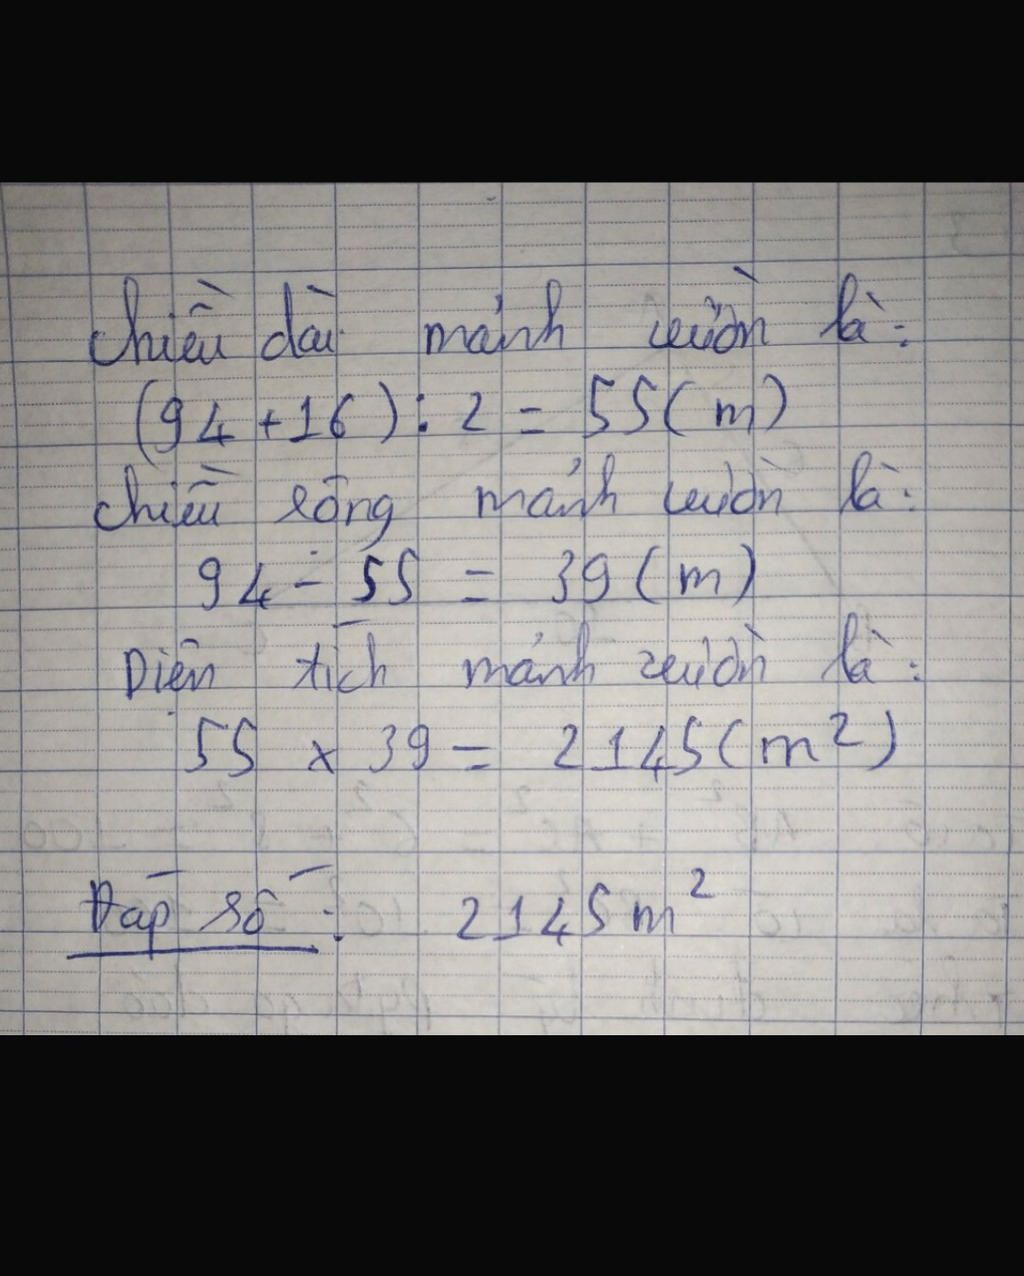 Chiều dài mảnh vườn là:
(94+16):2=55(m)
Chiều rộng mảnh vườn là:
94-55=39(m)
Diện tích mảnh vườn là:
55 x 39=2145(m²)
Đáp số: 2145m²